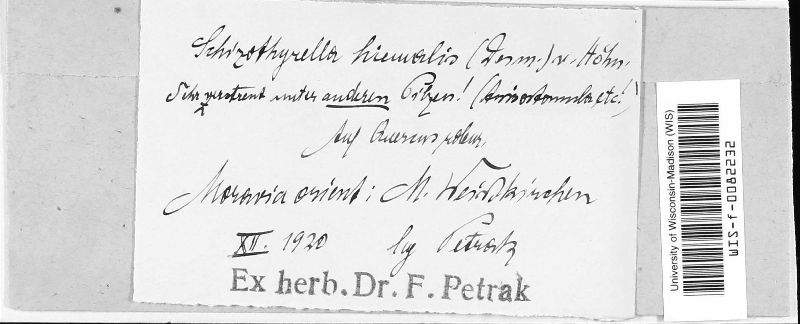 Schizothyrella hiemalis (Desm.) v. Höhn.
Sehr zerstreut unter anderen Pilzen! (Anisostomula etc!)
Auf Quercus robur.
Moravia orient: M. Weisskirchen
XII. 1920 lg Petrak
Ex herb. Dr. F. Petrak
University of Wisconsin-Madison (WIS)
WIS-f-0082232